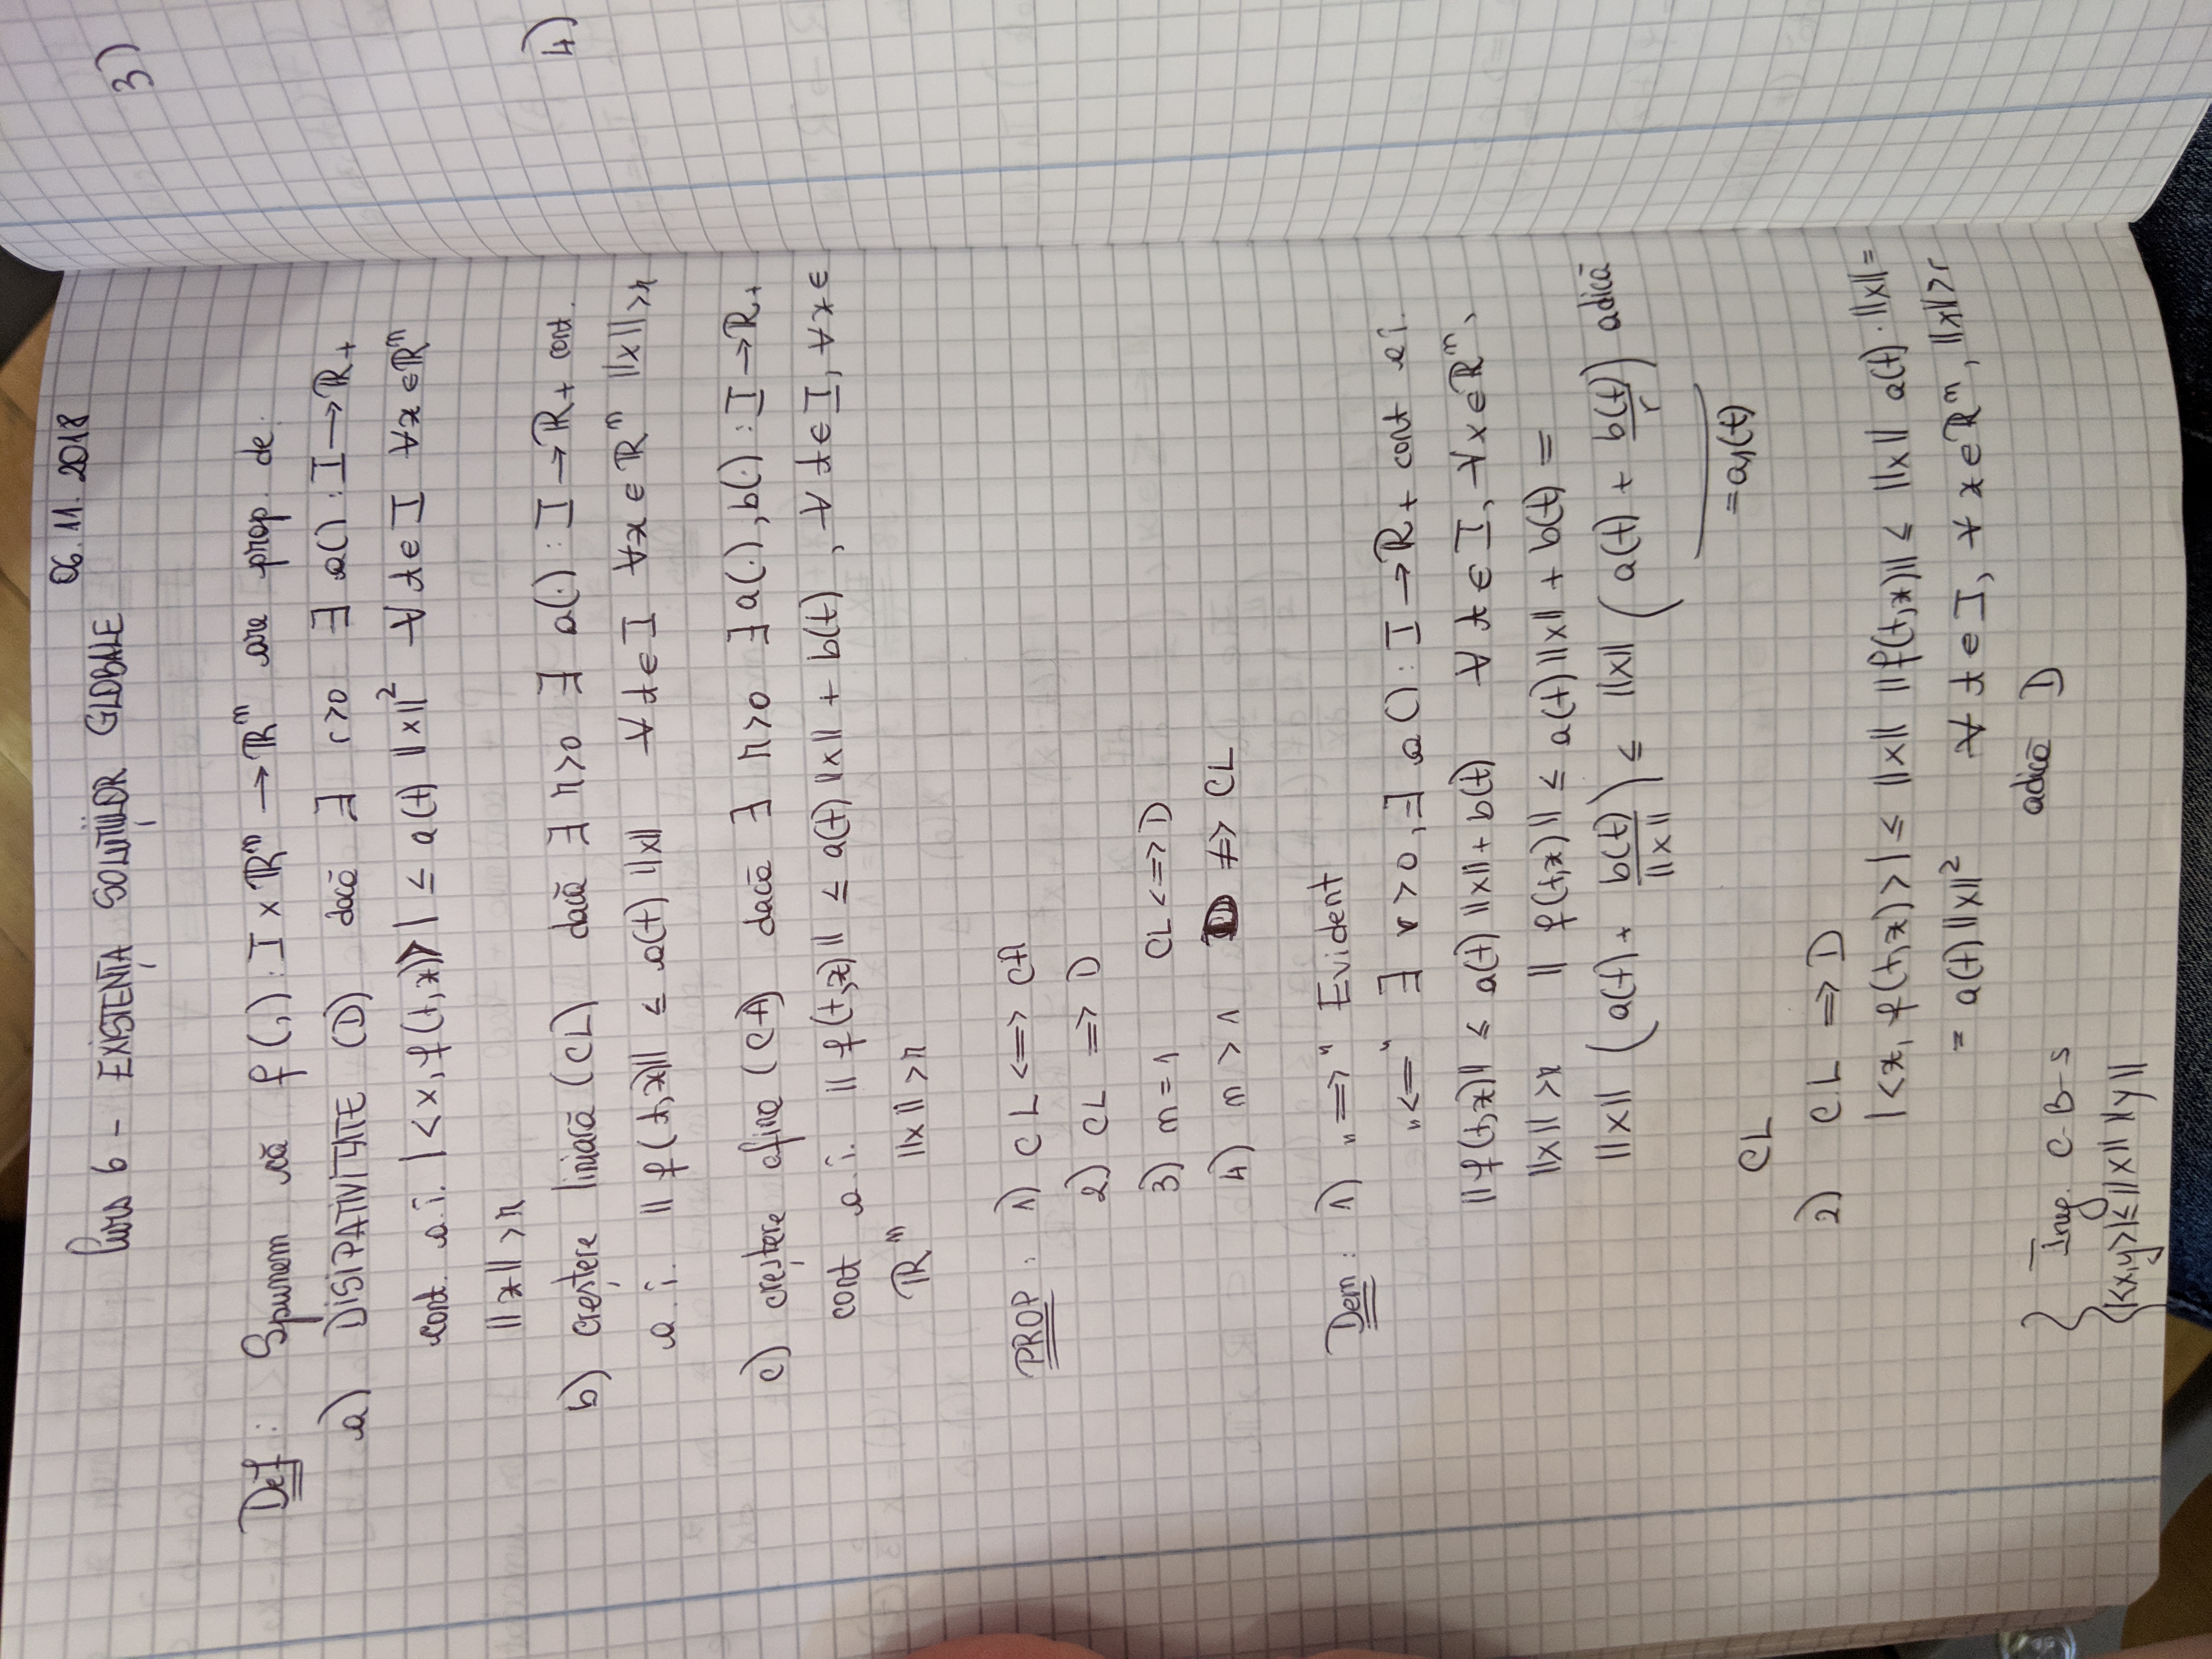 06.11.2018
Curs 6 - EXISTENȚA SOLUȚIILOR GLOBALE
3)
Def: Spunem că f(,): I × ℝⁿ → ℝⁿ are prop. de:
a) DISIPATIVITATE (D) dacă ∃ r>0 ∃ a(): I → ℝ₊
cont. a.î. |<x, f(t,x)>| ≤ a(t) ||x||² ∀ t ∈ I ∀ x ∈ ℝⁿ
||x|| > r
b) creștere liniară (CL) dacă ∃ r>0 ∃ a(·): I → ℝ₊ cont.
4)
a.î. ||f(t,x)|| ≤ a(t) ||x|| ∀ t ∈ I ∀ x ∈ ℝⁿ ||x|| > r
c) creștere afină (CA) dacă ∃ r>0 ∃ a(·), b(·): I → ℝ₊
cont a.î. ||f(t,x)|| ≤ a(t) ||x|| + b(t), ∀ t ∈ I, ∀ x ∈
ℝⁿ ||x|| > r
PROP: 1) CL <=> CA
2) CL => D
3) n = 1 CL <=> D
4) n > 1 D ≠> CL
Dem: 1) „=>" Evident
„<=" ∃ r > 0, ∃ a(): I → ℝ₊ cont aî.
||f(t,x)|| ≤ a(t) ||x|| + b(t) ∀ t ∈ I, ∀ x ∈ ℝⁿ,
||x|| > r ||f(t,x)|| ≤ a(t) ||x|| + b(t) =
||x|| (a(t) + b(t)/||x||) ≤ ||x|| (a(t) + b(t)/r) adică
= a₁(t)
CL
2) C.L => D
|<x, f(t,x)>| ≤ ||x|| ||f(t,x)|| ≤ ||x|| a(t) · ||x|| =
= a(t) ||x||² ∀ t ∈ I, ∀ x ∈ ℝⁿ, ||x|| > r
adică D
Ineg. C-B-S
|<x,y>| ≤ ||x|| ||y||